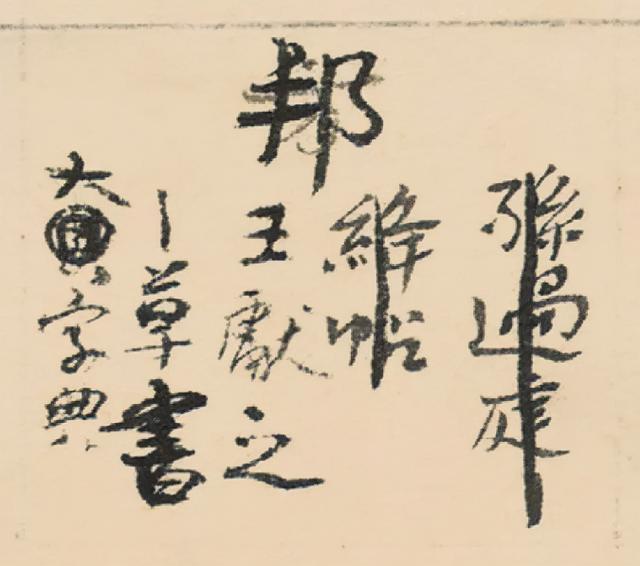 邦
孫過庭
絳帖
王獻之
草書
大字典